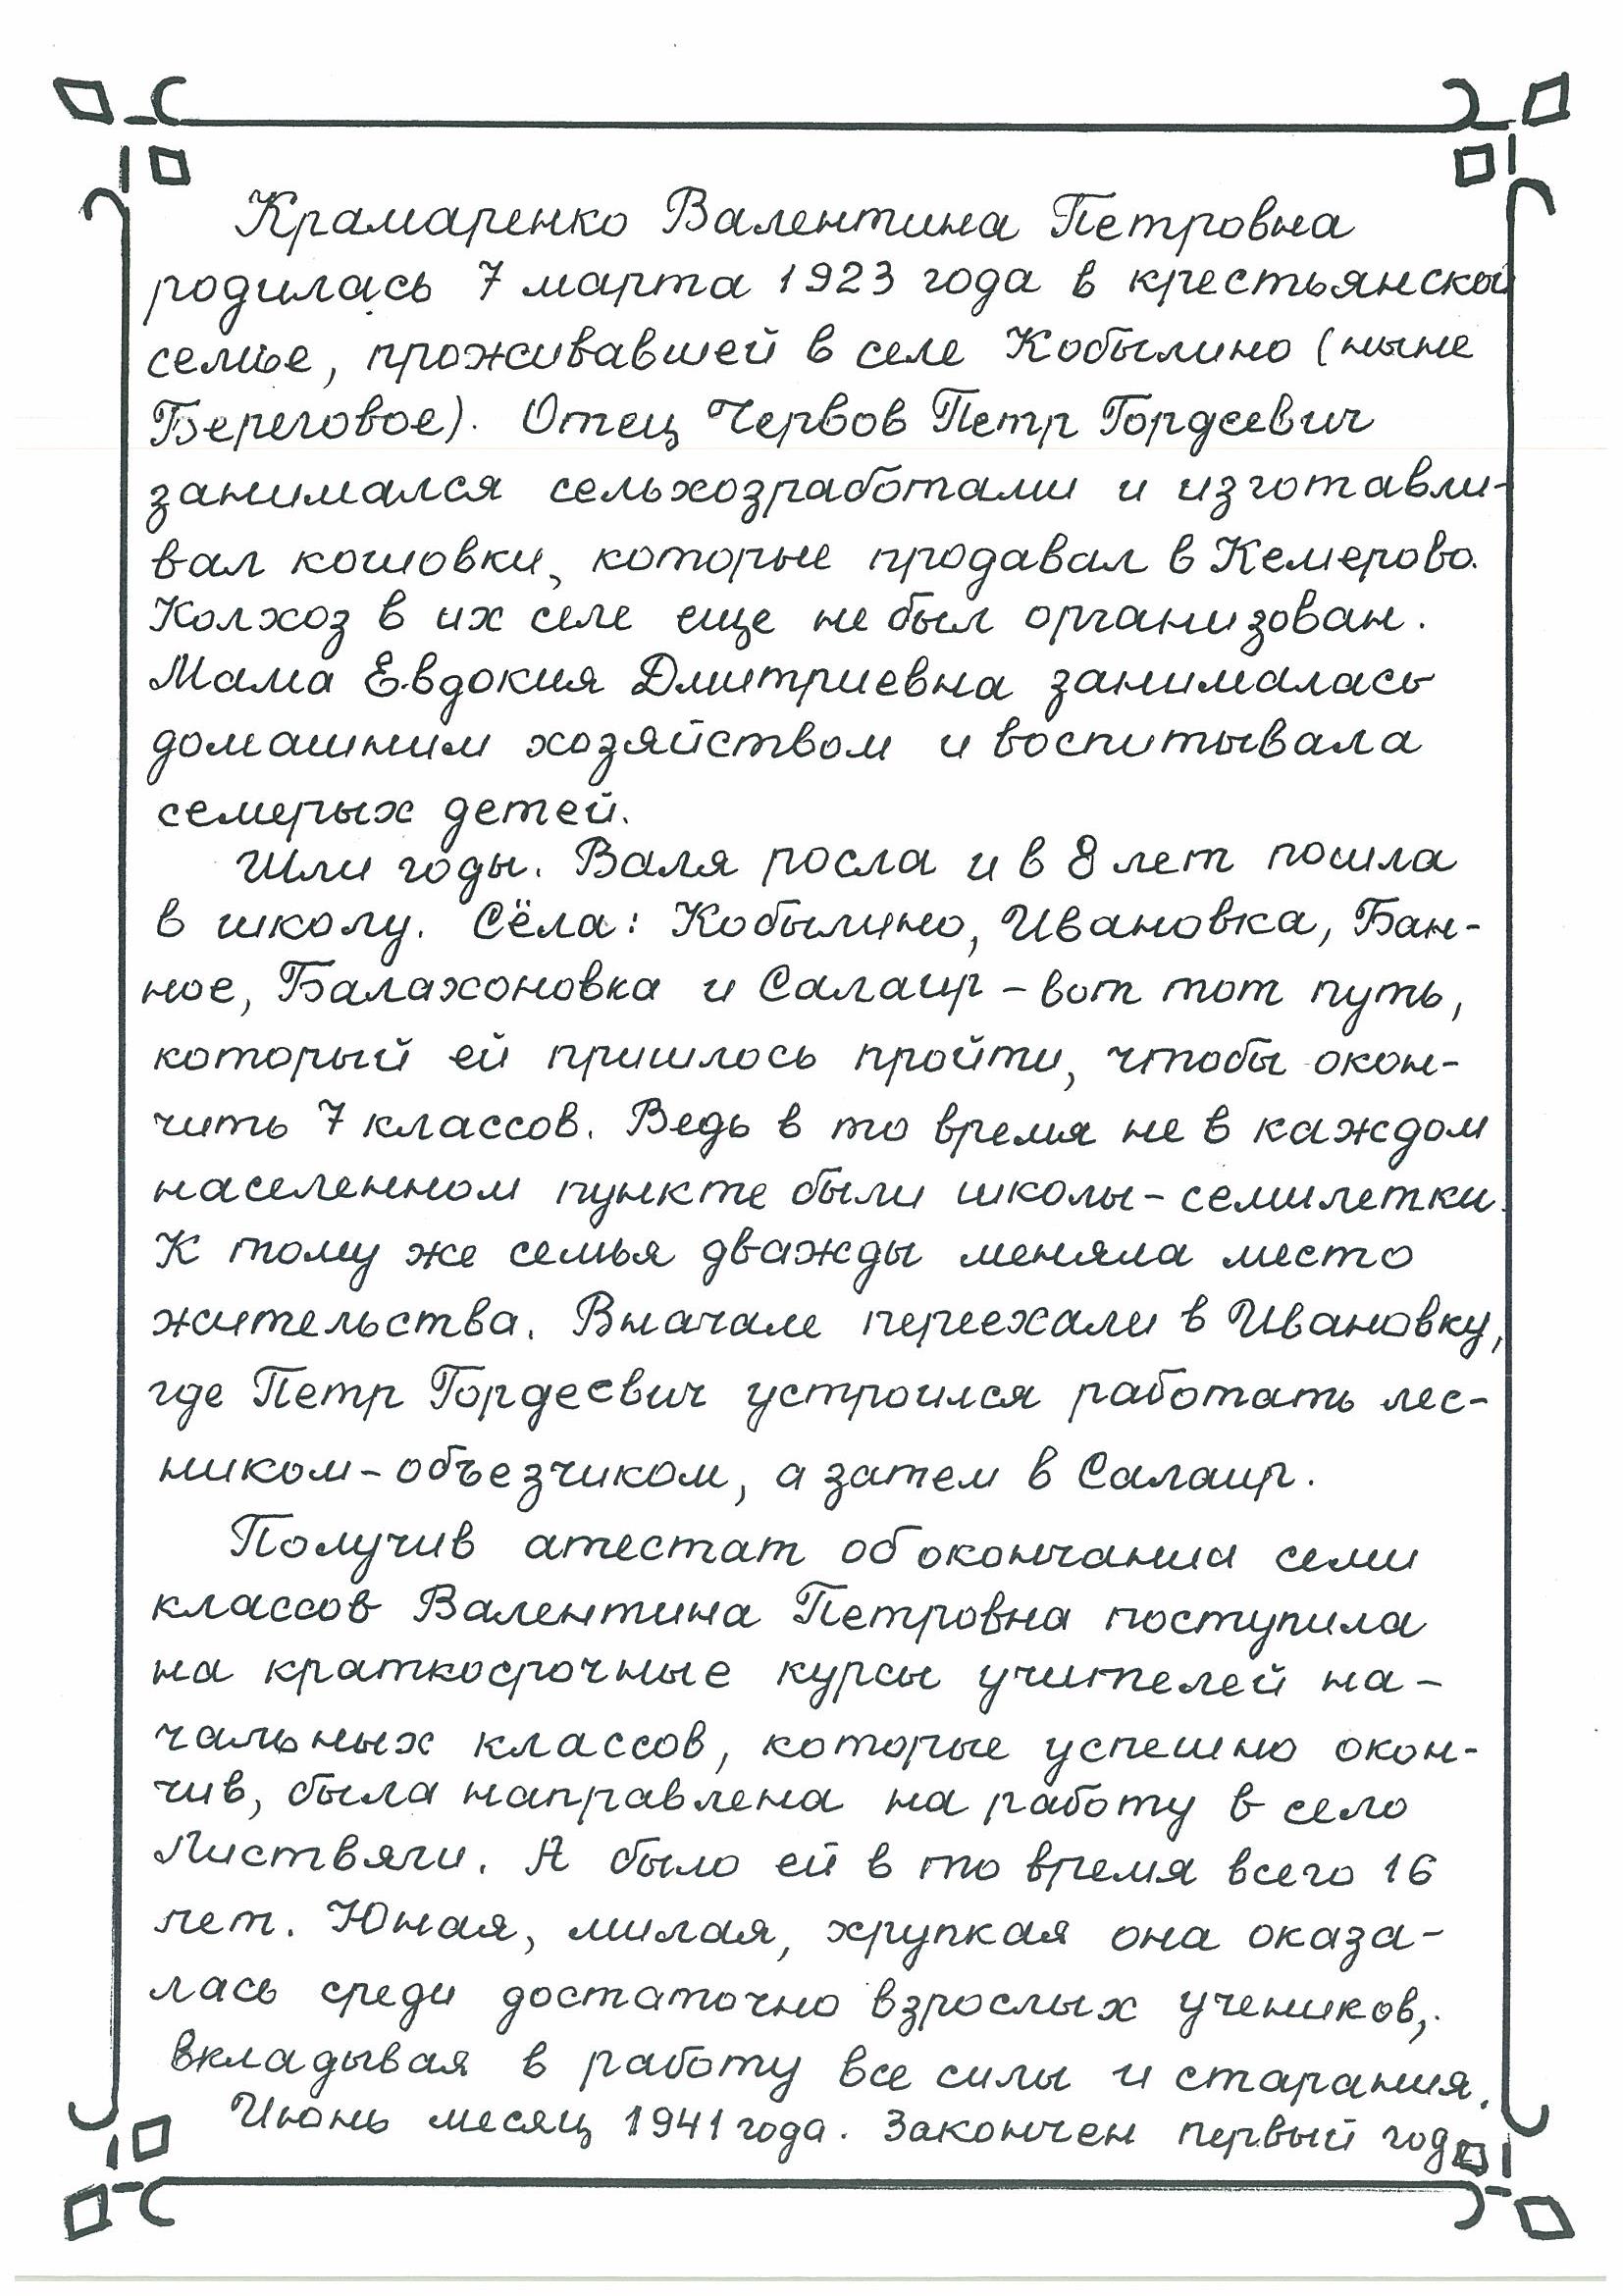 Крамаренко Валентина Петровна
родилась 7 марта 1923 года в крестьянской
семье, проживавшей в селе Кобылино (ныне
Береговое). Отец Червов Петр Гордеевич
занимался сельхозработами и изготавли-
вал кошовки, которые продавал в Кемерово.
Колхоз в их селе еще не был организован.
Мама Евдокия Дмитриевна занималась
домашним хозяйством и воспитывала
семерых детей.
Шли годы. Валя росла и в 8 лет пошла
в школу. Сёла: Кобылино, Ивановка, Бан-
ное, Балахоновка и Салаир - вот тот путь,
который ей пришлось пройти, чтобы окон-
чить 7 классов. Ведь в то время не в каждом
населенном пункте были школы-семилетки.
К тому же семья дважды меняла место
жительства. Вначале переехали в Ивановку,
где Петр Гордеевич устроился работать лес-
ником-объезчиком, а затем в Салаир.
Получив атестат об окончании семи
классов Валентина Петровна поступила
на краткосрочные курсы учителей на-
чальных классов, которые успешно окон-
чив, была направлена на работу в село
Листвяги. А было ей в то время всего 16
лет. Юная, милая, хрупкая она оказа-
лась среди достаточно взрослых учеников,
вкладывая в работу все силы и старания.
Июнь месяц 1941 года. Закончен первый год